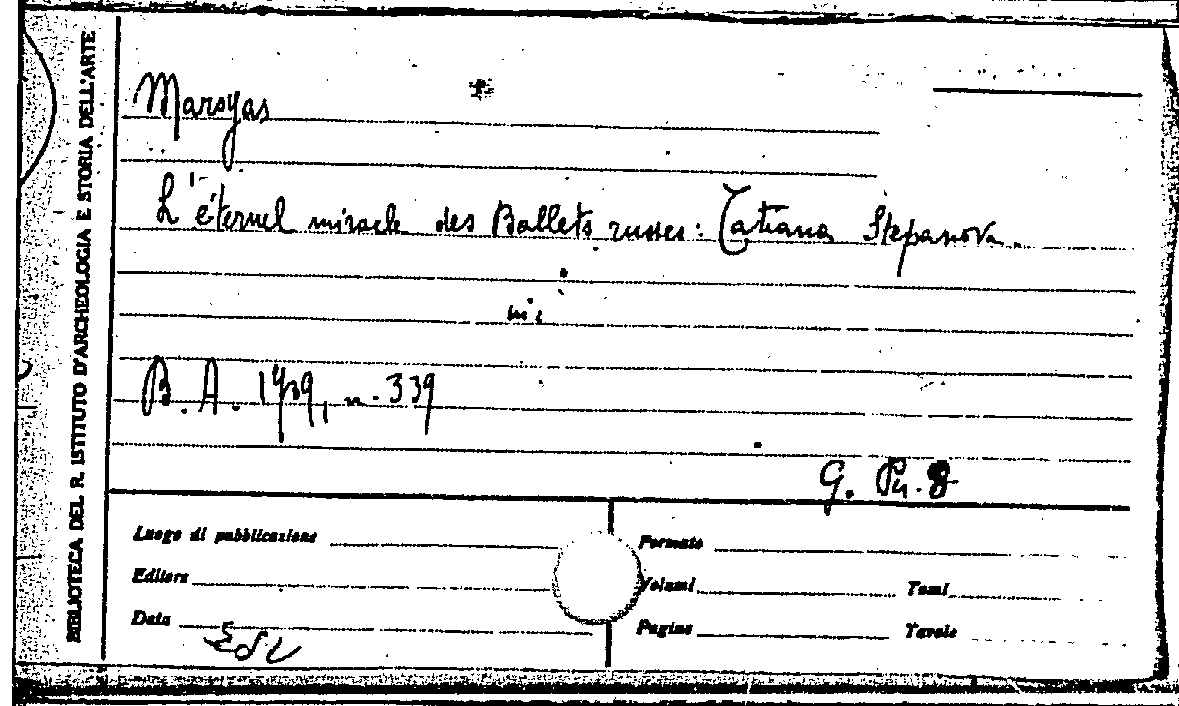 BIBLIOTECA DEL R. ISTITUTO D'ARCHEOLOGIA E STORIA DELL'ARTE
Marsyas
L'éternel miracle des Ballets russes: Tatiana Stepanova.
B. A. 1939, n. 339
G. Pu. 8
Luogo di pubblicazione
Editore
Data
Formato
Volumi
Tomi
Pagine
Tavole